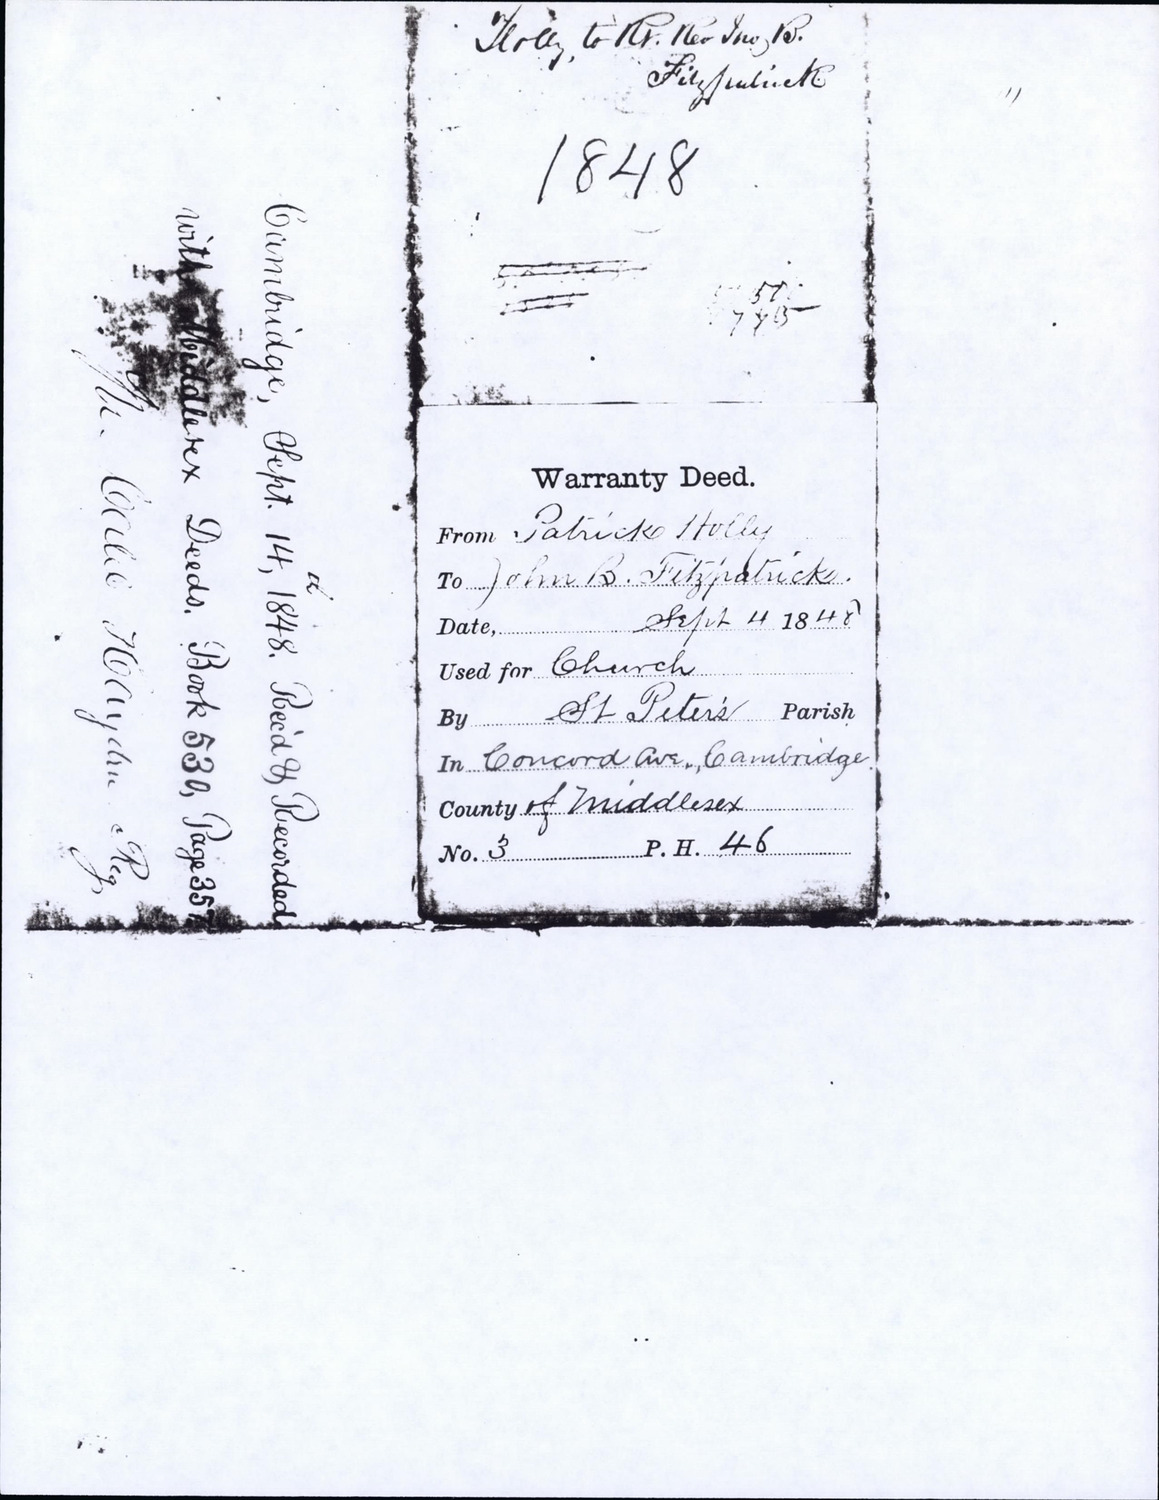 Holly to Rt. Rev Jno, B.
Fitzpatrick
1848
Warranty Deed.
From Patrick Holly
To John B. Fitzpatrick.
Date, Sept 4 1848
Used for Church
By St Peter's Parish
In Concord Ave., Cambridge
County of Middlesex
No. 3 P. H. 46
Cambridge, Sept. 14, 1848. Rec'd & Recorded
with Middlesex Deeds. Book 530, Page 357
Caleb Hayden Reg